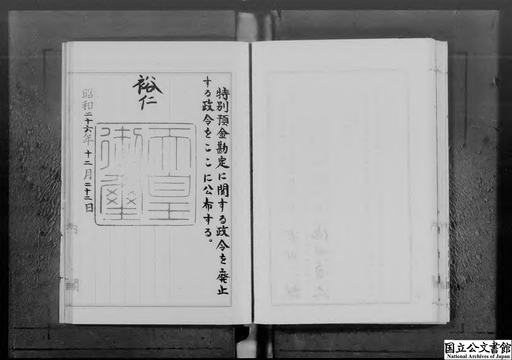 特別預金勘定に関する政令を廃止
する政令をここに公布する。
裕仁
天皇
御璽
昭和二十六年十二月二十二日
国立公文書館
National Archives of Japan